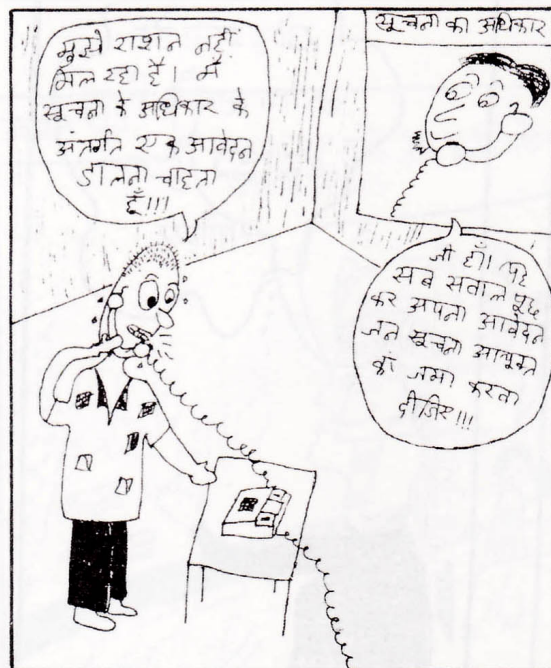 मुझे राशन नहीं
मिल रहा है। मैं
सूचना के अधिकार के
अंतर्गत एक आवेदन
डालना चाहता
हूँ!!!
सूचना का अधिकार
जी हाँ।
सब सवाल पूछ
कर अपना आवेदन
जन सूचना आयुक्त
को जमा करवा
दीजिए!!!